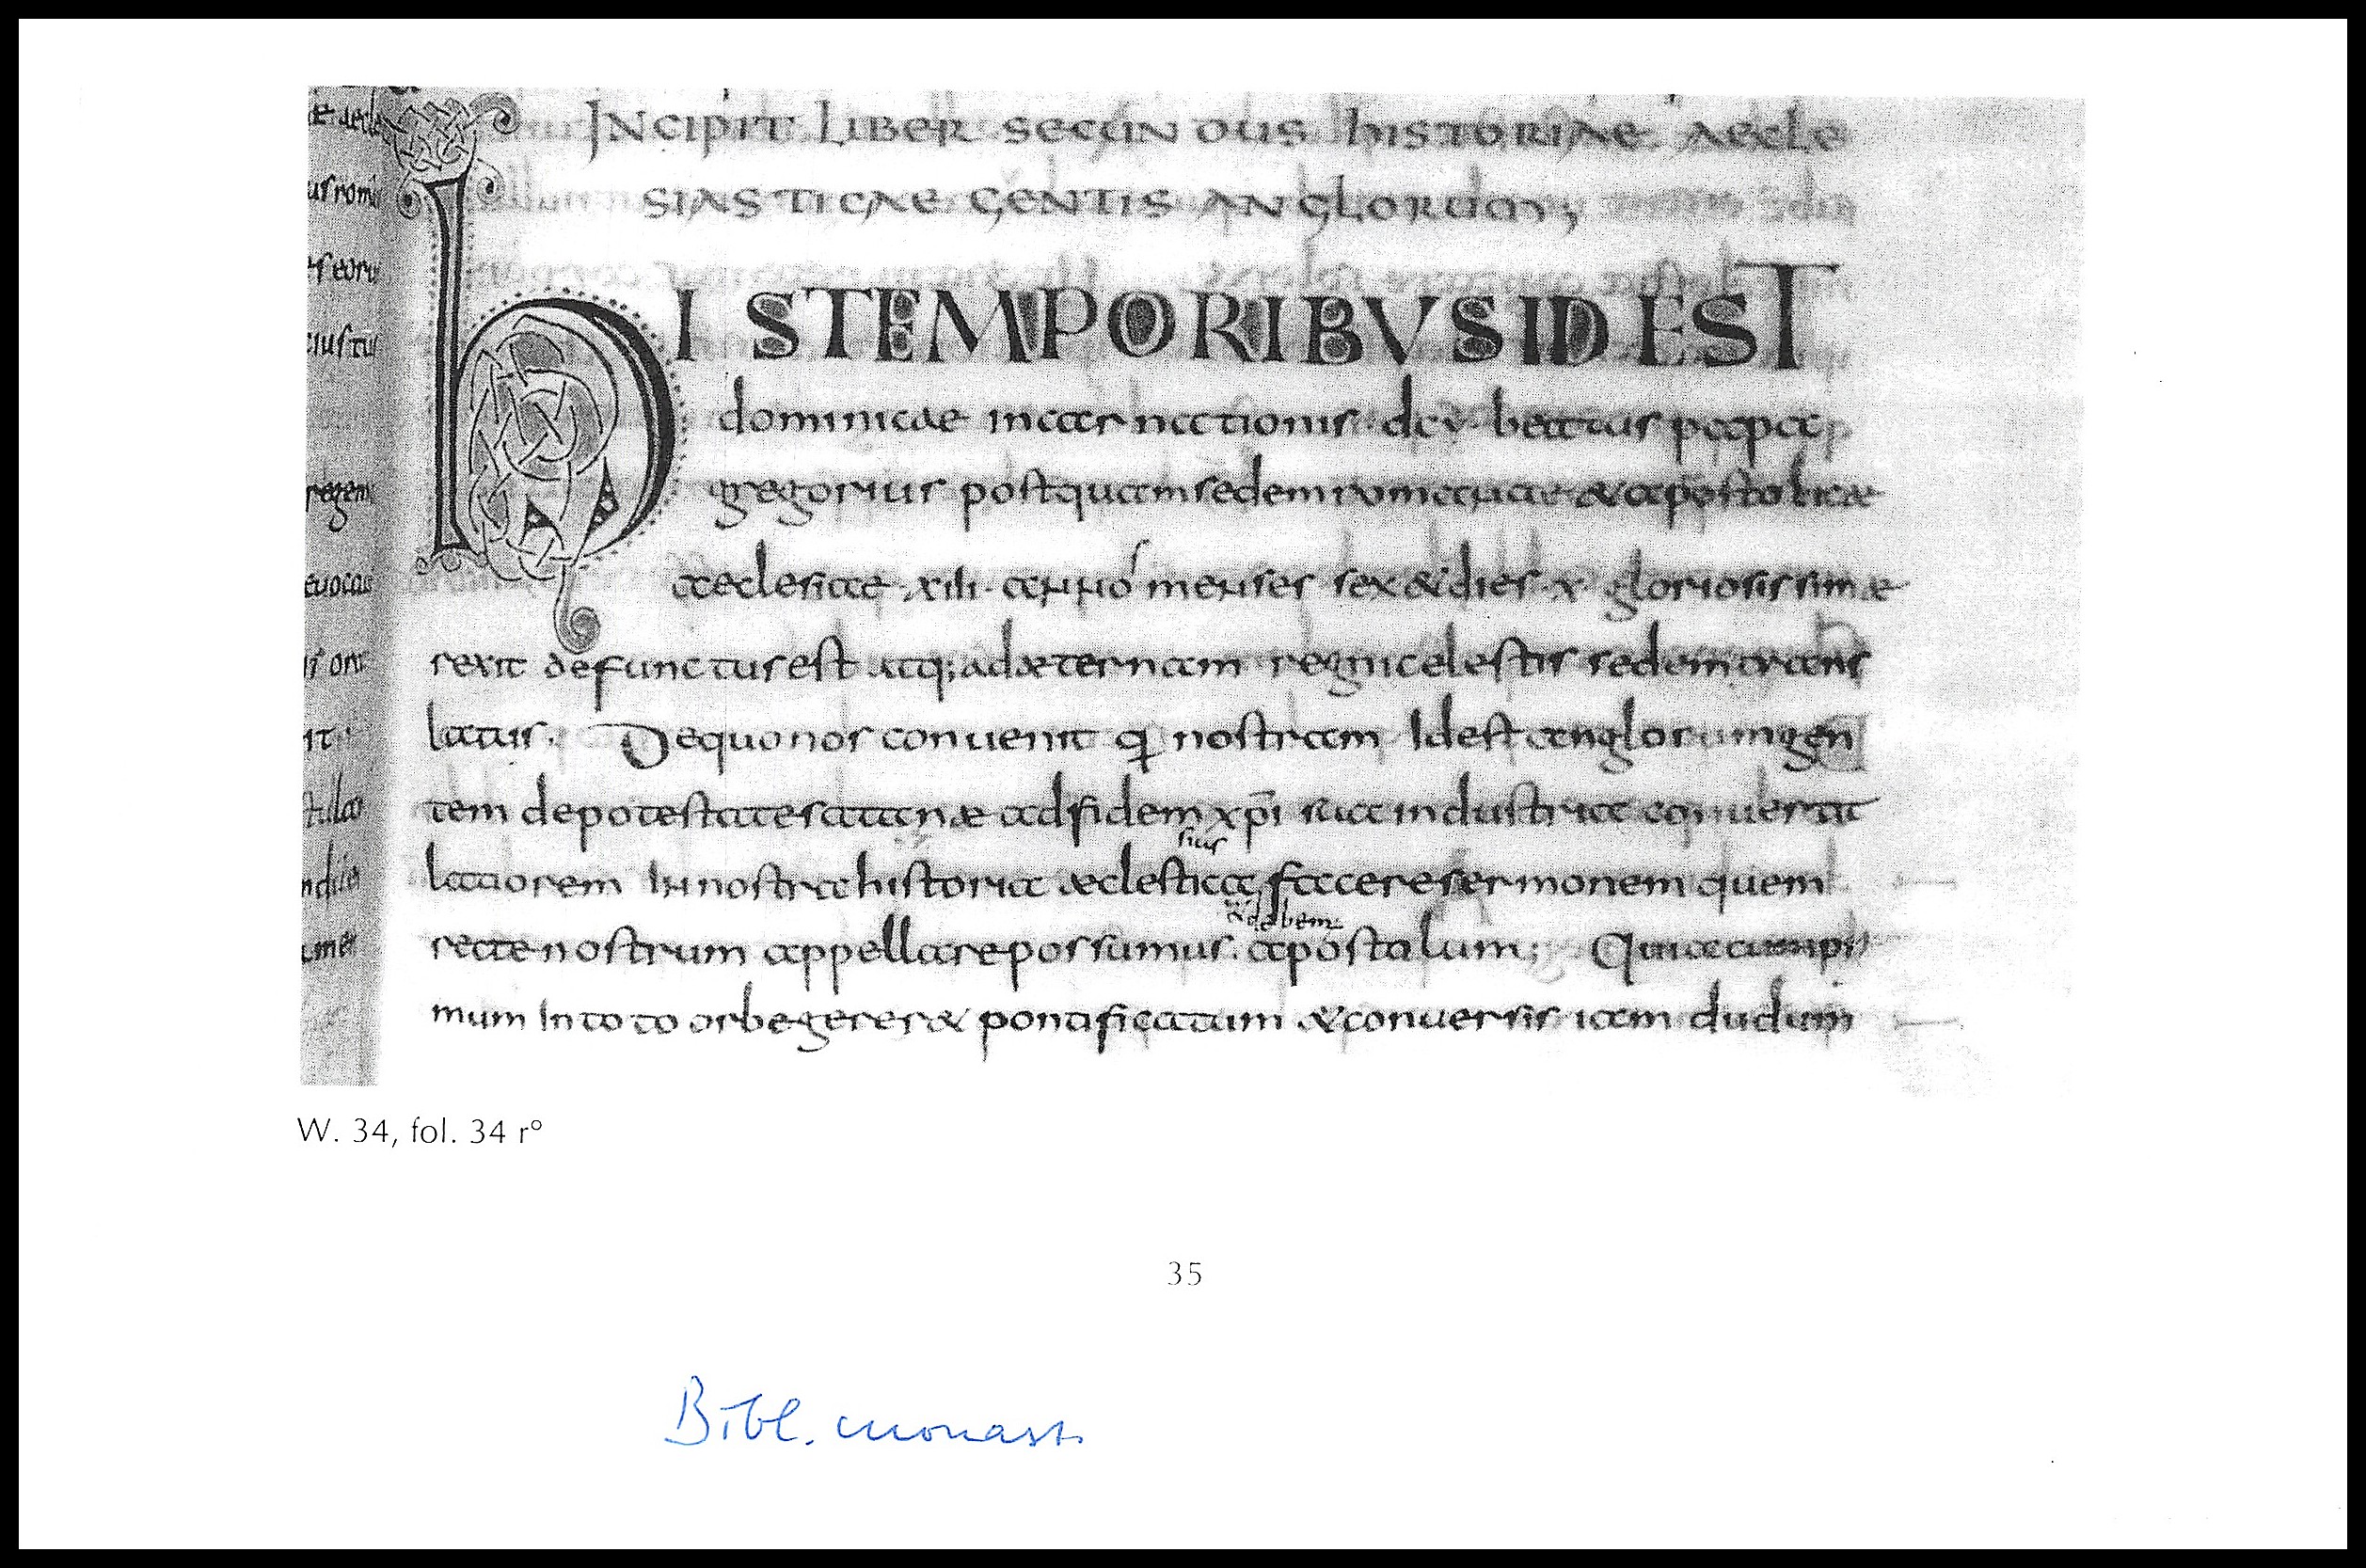 INCIPIT LIBER SECUNDUS HISTORIAE AECLE
SIASTICAE GENTIS ANGLORUM;
HIS TEMPORIBVS ID EST
dominicae incarnationis dcv beatus papa
gregorius postquam sedem romanae & apostolicae
aeclesiae xiii annos menses sex & dies x gloriosissimae
rexit defunctus est atq; ad æternam regni celestis sedem trans
latus. De quo nos conuenit q nostram Id est anglorum gen
tem de potestate satanæ ad fidem xp̄i sua industria conuertit
sius
latiorem In nostra historia æclestica facere sermonem quem
& debem
recte nostrum appellare possumus apostolum; Quia cum pri
mum In toto orbe gereret pontificatum & conuersis iam dudum
æ aecle
us roma
es eoru
eius tu
regem
euocau
it
W. 34, fol. 34 r°
35
Bibl. monast.